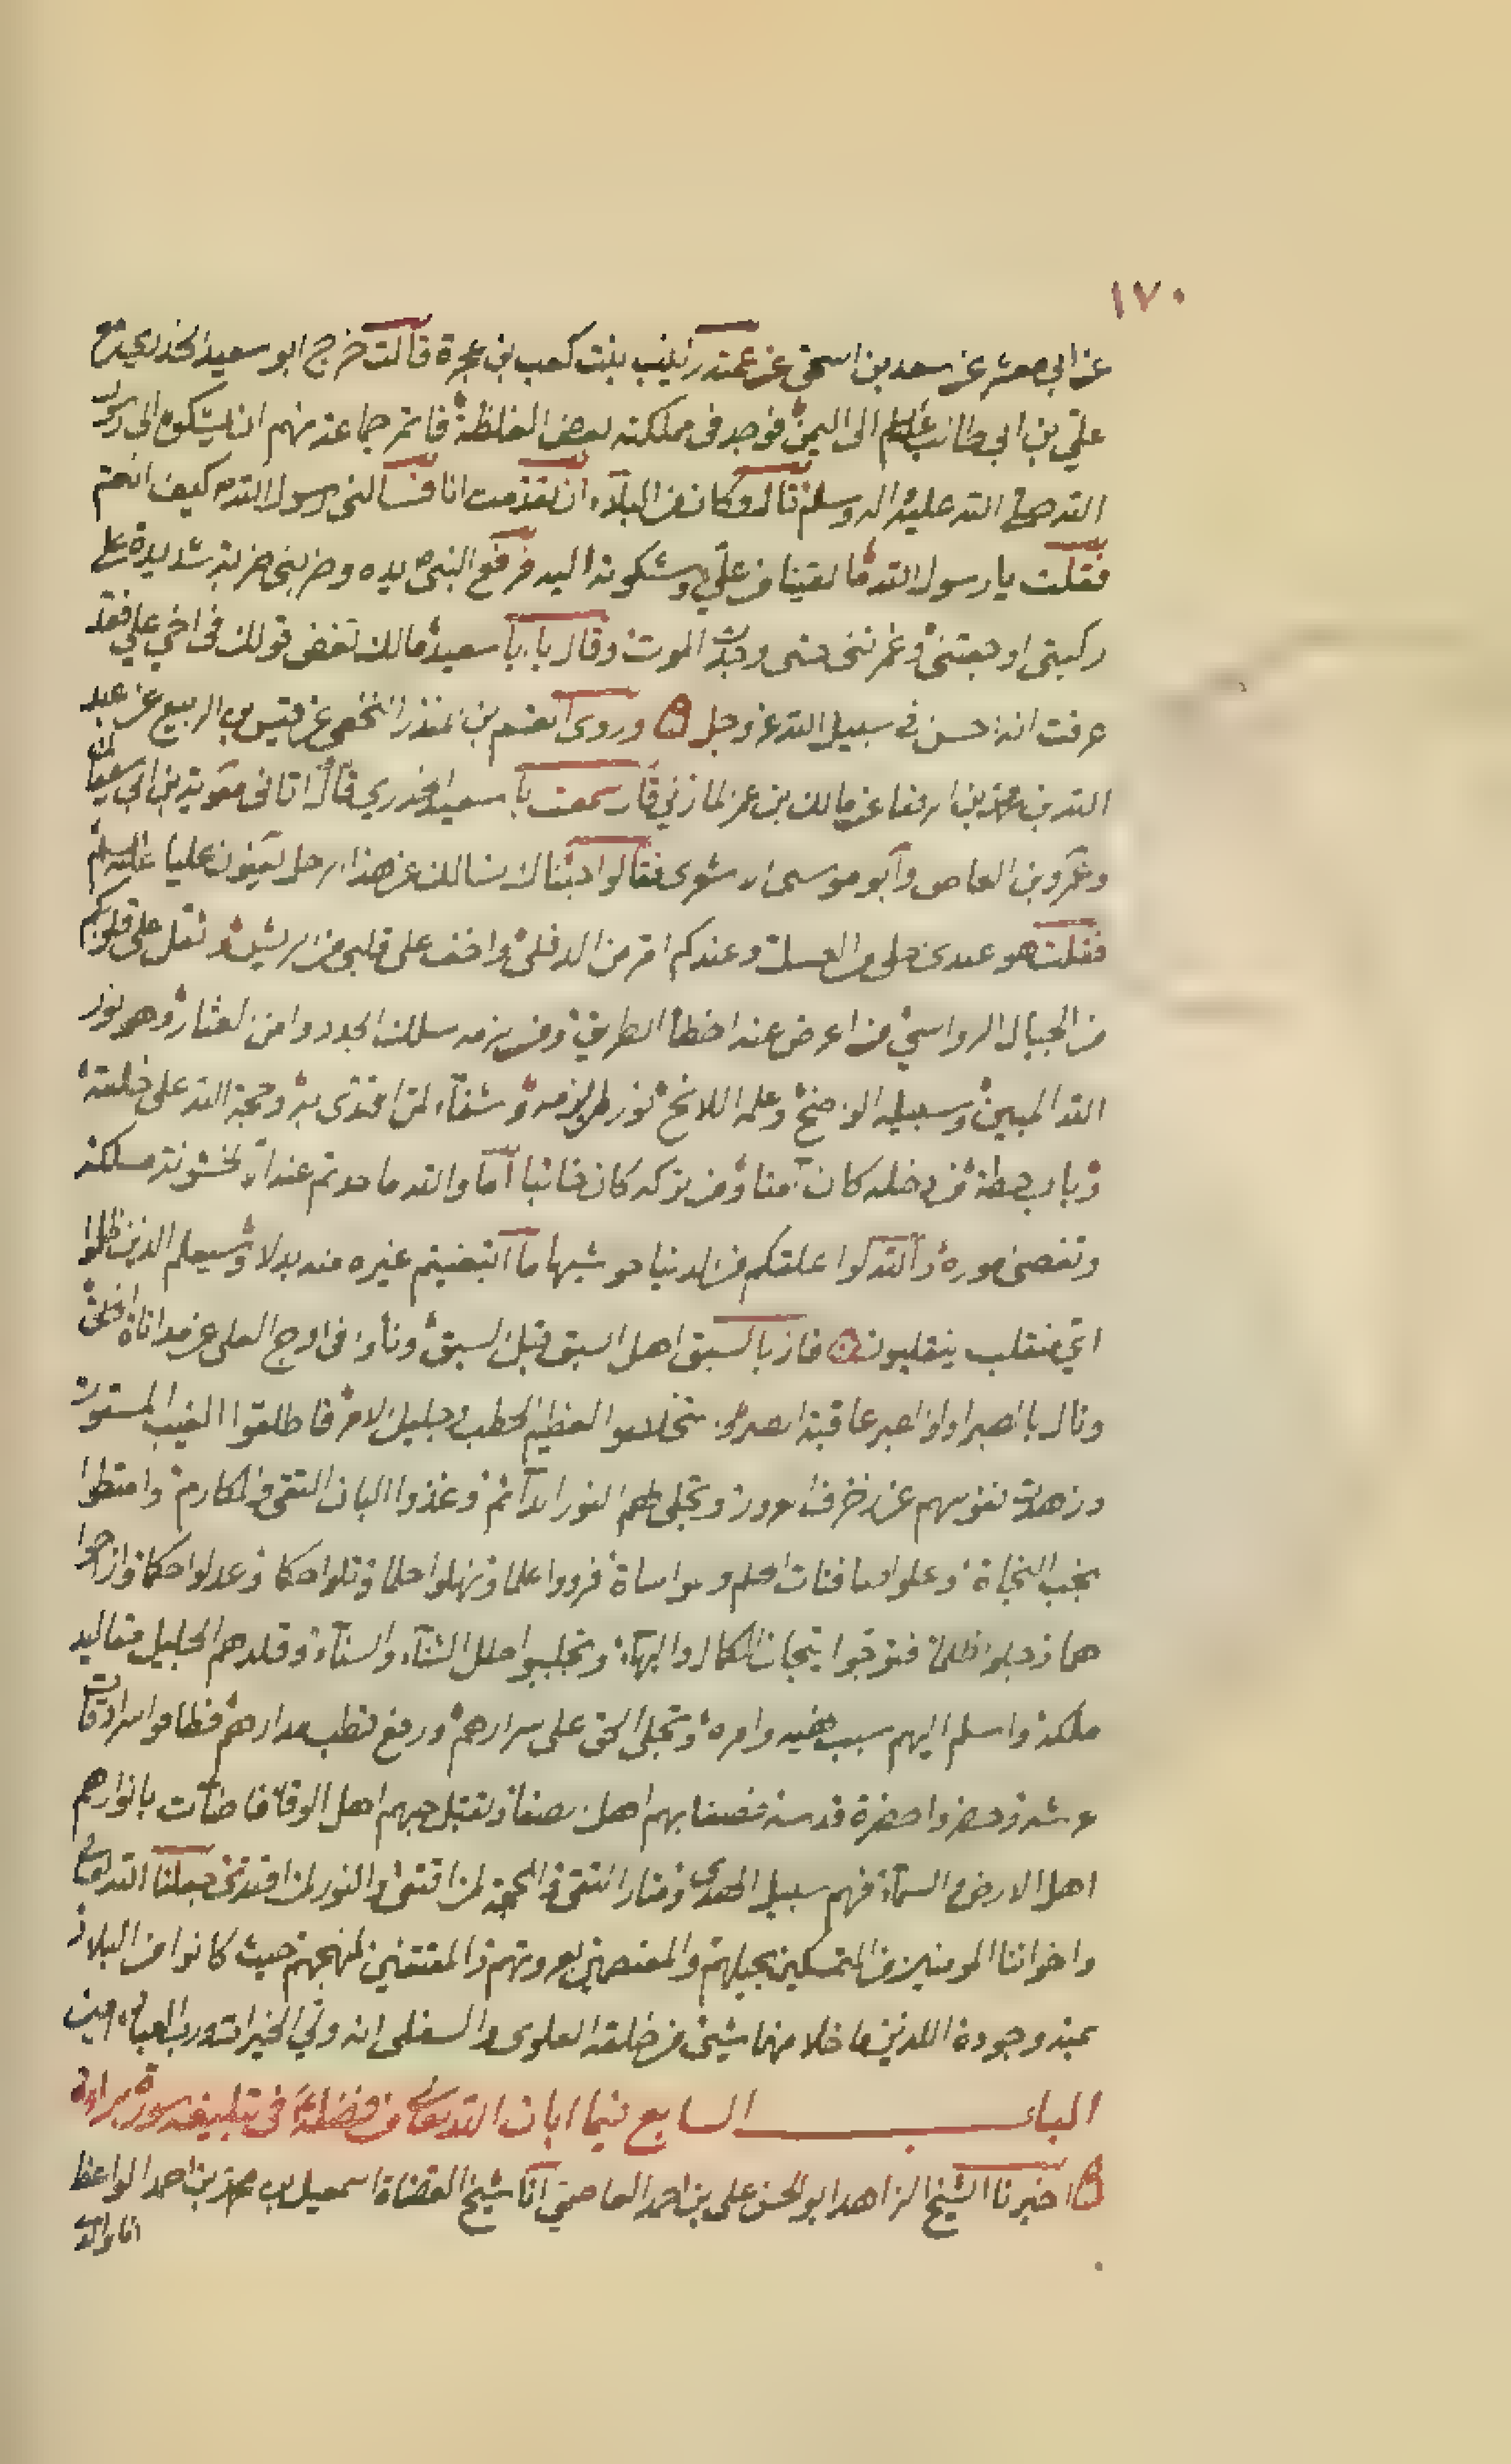 ١٧٠
عن ابي معشر عن سعد بن اسحق عن عمته زينب بنت كعب بن عجرة قالت خرج ابو سعيد الخدري مع
علي بن ابي طالب الى اليمن فوجد في مملكته بعض الغلظة فاتمر جماعة منهم ان يشكوه الى رسول
الله صلى الله عليه اله وسلم قال وكان من البلاء ان تقدمت انا فسالني رسول الله كيف انتم
فقلت يا رسول الله ما لقينا من علي وشكوته اليه فرفع النبي يده وضربني ضربة شديدة على
ركبتي اوجعتني وغمزتني حتى وجدت الموت وقال يا با سعيد مالك تخفض قولك في اخي علي فقد
عرفت انه احسن في سبيل الله عز وجل وروى القسم بن المنذر النخعي عن قيس بن الربيع عن عبد
الله بن محمد بن عن مالك بن المازني قال سمعت با سعيد الخدري قال اتاني معوية بن ابي سفيان
وعمرو بن العاص وابو موسى الاشعري فقالوا جئناك نسالك عن هذا الرجل يعنون عليا عليه السلم
فقلت هو عندي احلى من العسل وعندكم امر من الدفلى واخف على قلبي من الريش وثقل على قلوبكم
من الجبال الرواسي من اعرض عنه اخطا الطريق ومن لزمه سلك الجدد وامن العثار وهو نور
الله المبين وسبيله الواضح وعلمه اللائح نور لمن لزمه وشفاء لمن اقتدى به وحجة الله على خليقته
وباب حطة من دخله كان آمنا ومن تركه كان خائبا اما والله ما حدتم عنه الا لخشونة مسلكه
علقتكم من الدنيا حواشيها ما ابتغيتم غيره منه بدلا وسيعلم الذين ظلموا
اي منقلب ينقلبون فاز بالسبق اهل السبق قبل السبق وناوا في اوج العلى عن مداناة الخلق
ونال بالصبر اولوا الصبر عاقبة الصبر العظيم الخطب وجليل الامر فاطلعوا الغيب المستور
وزهدت نفوسهم عن زخرف الغرور وتجلى لهم النور الدائم وغذوا البان التقى والمكارم وامتطوا
نجب النجاة وعلوا فرووا علما ونهلوا حلما وتلوا حكما وعدلوا حكما وازاحوا
هما وجلوا ظلما فتوجوا بتيجان الكمال والبهاء وتجلببوا حلل الثناء والسناء وقلدهم الجليل مقاليد
ملكه واسلم اليهم سبب وامره وتجلى الحق على سرارهم ورفع قطب مدارهم فطافوا سرادقات
عرشه وحضروا حضرة قدسه فصفا بهم اهل الصفاء وتقبل حبهم اهل الوفاء فاضاءت بانوارهم
اهل الارض والسماء فهم سبيل الهدى ومنار التقى والحجة لمن اقتفى والنور لمن اقتدى جعلنا الله تعالى
واخواننا المومنين من المتمسكين بحبلهم والمعتصمين بعروتهم والمقتفين لمنهجهم حيث كانوا من البلاد
بمنه وجوده اللذين ما خلا منهما شيئ من خلقه العلوي والسفلي انه ولي الخيرات ورب العباد امين
الباب السابع فيما ابان الله تعالى من فضله في تبليغه سورة براءة
اخبرنا الشيخ الزاهد ابو الحسن علي بن احمد العاصمي انا شيخ القضاة اسمعيل بن محمد بن احمد الواعظ
انا والدي